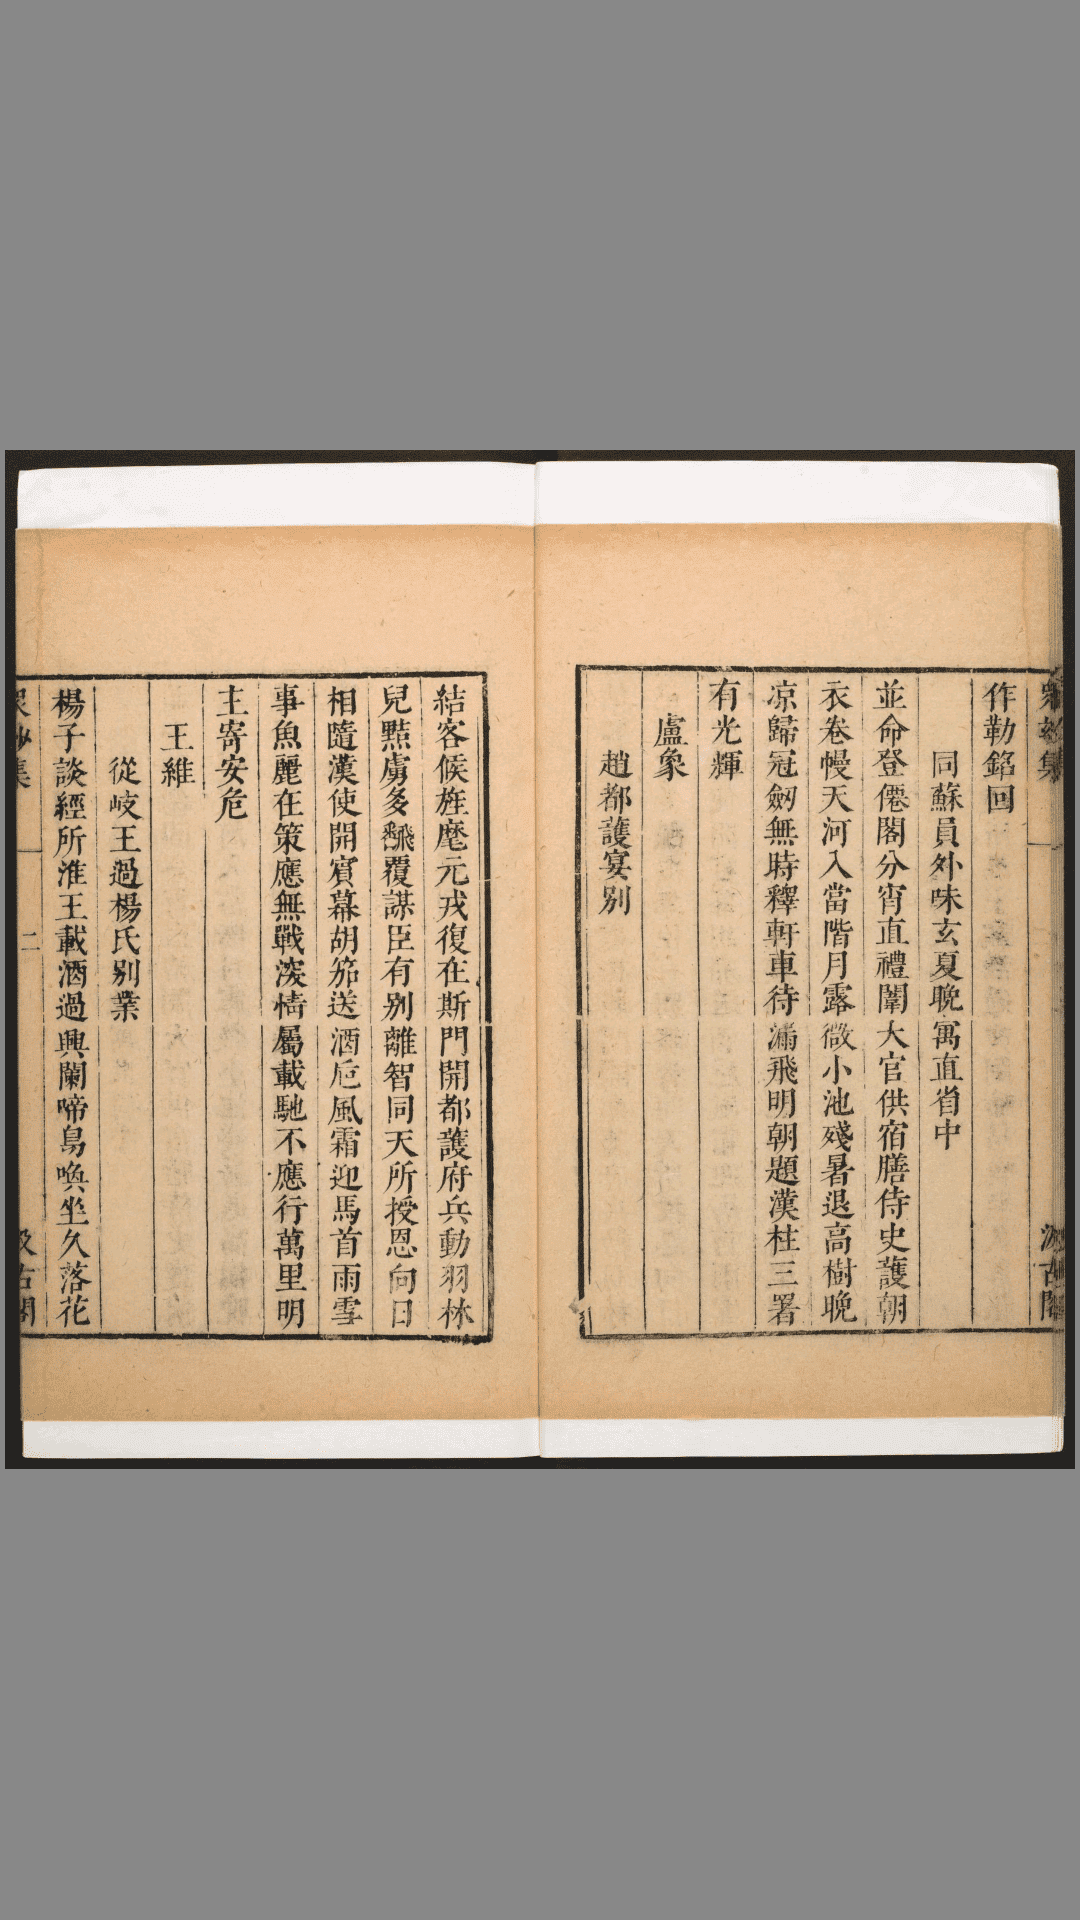 衆妙集
汲古閣
作勒銘回
同蘇員外味玄夏晚寓直省中
並命登僊閣分宵直禮闈大官供宿膳侍史護朝
衣卷幔天河入當階月露微小池殘暑退高樹晚
凉歸冠劒無時釋軒車待漏飛明朝題漢柱三署
有光輝
盧象
趙都護宴别
結客候旌麾元戎復在斯門開都護府兵動羽林
兒黠虜多飜覆謀臣有别離智同天所授恩向日
相隨漢使開賓幕胡笳送酒巵風霜迎馬首雨雪
事魚麗在策應無戰深情屬載馳不應行萬里明
主寄安危
王維
從岐王過楊氏别業
楊子談經所淮王載酒過興闌啼鳥喚坐久落花
衆妙集
二
汲古閣